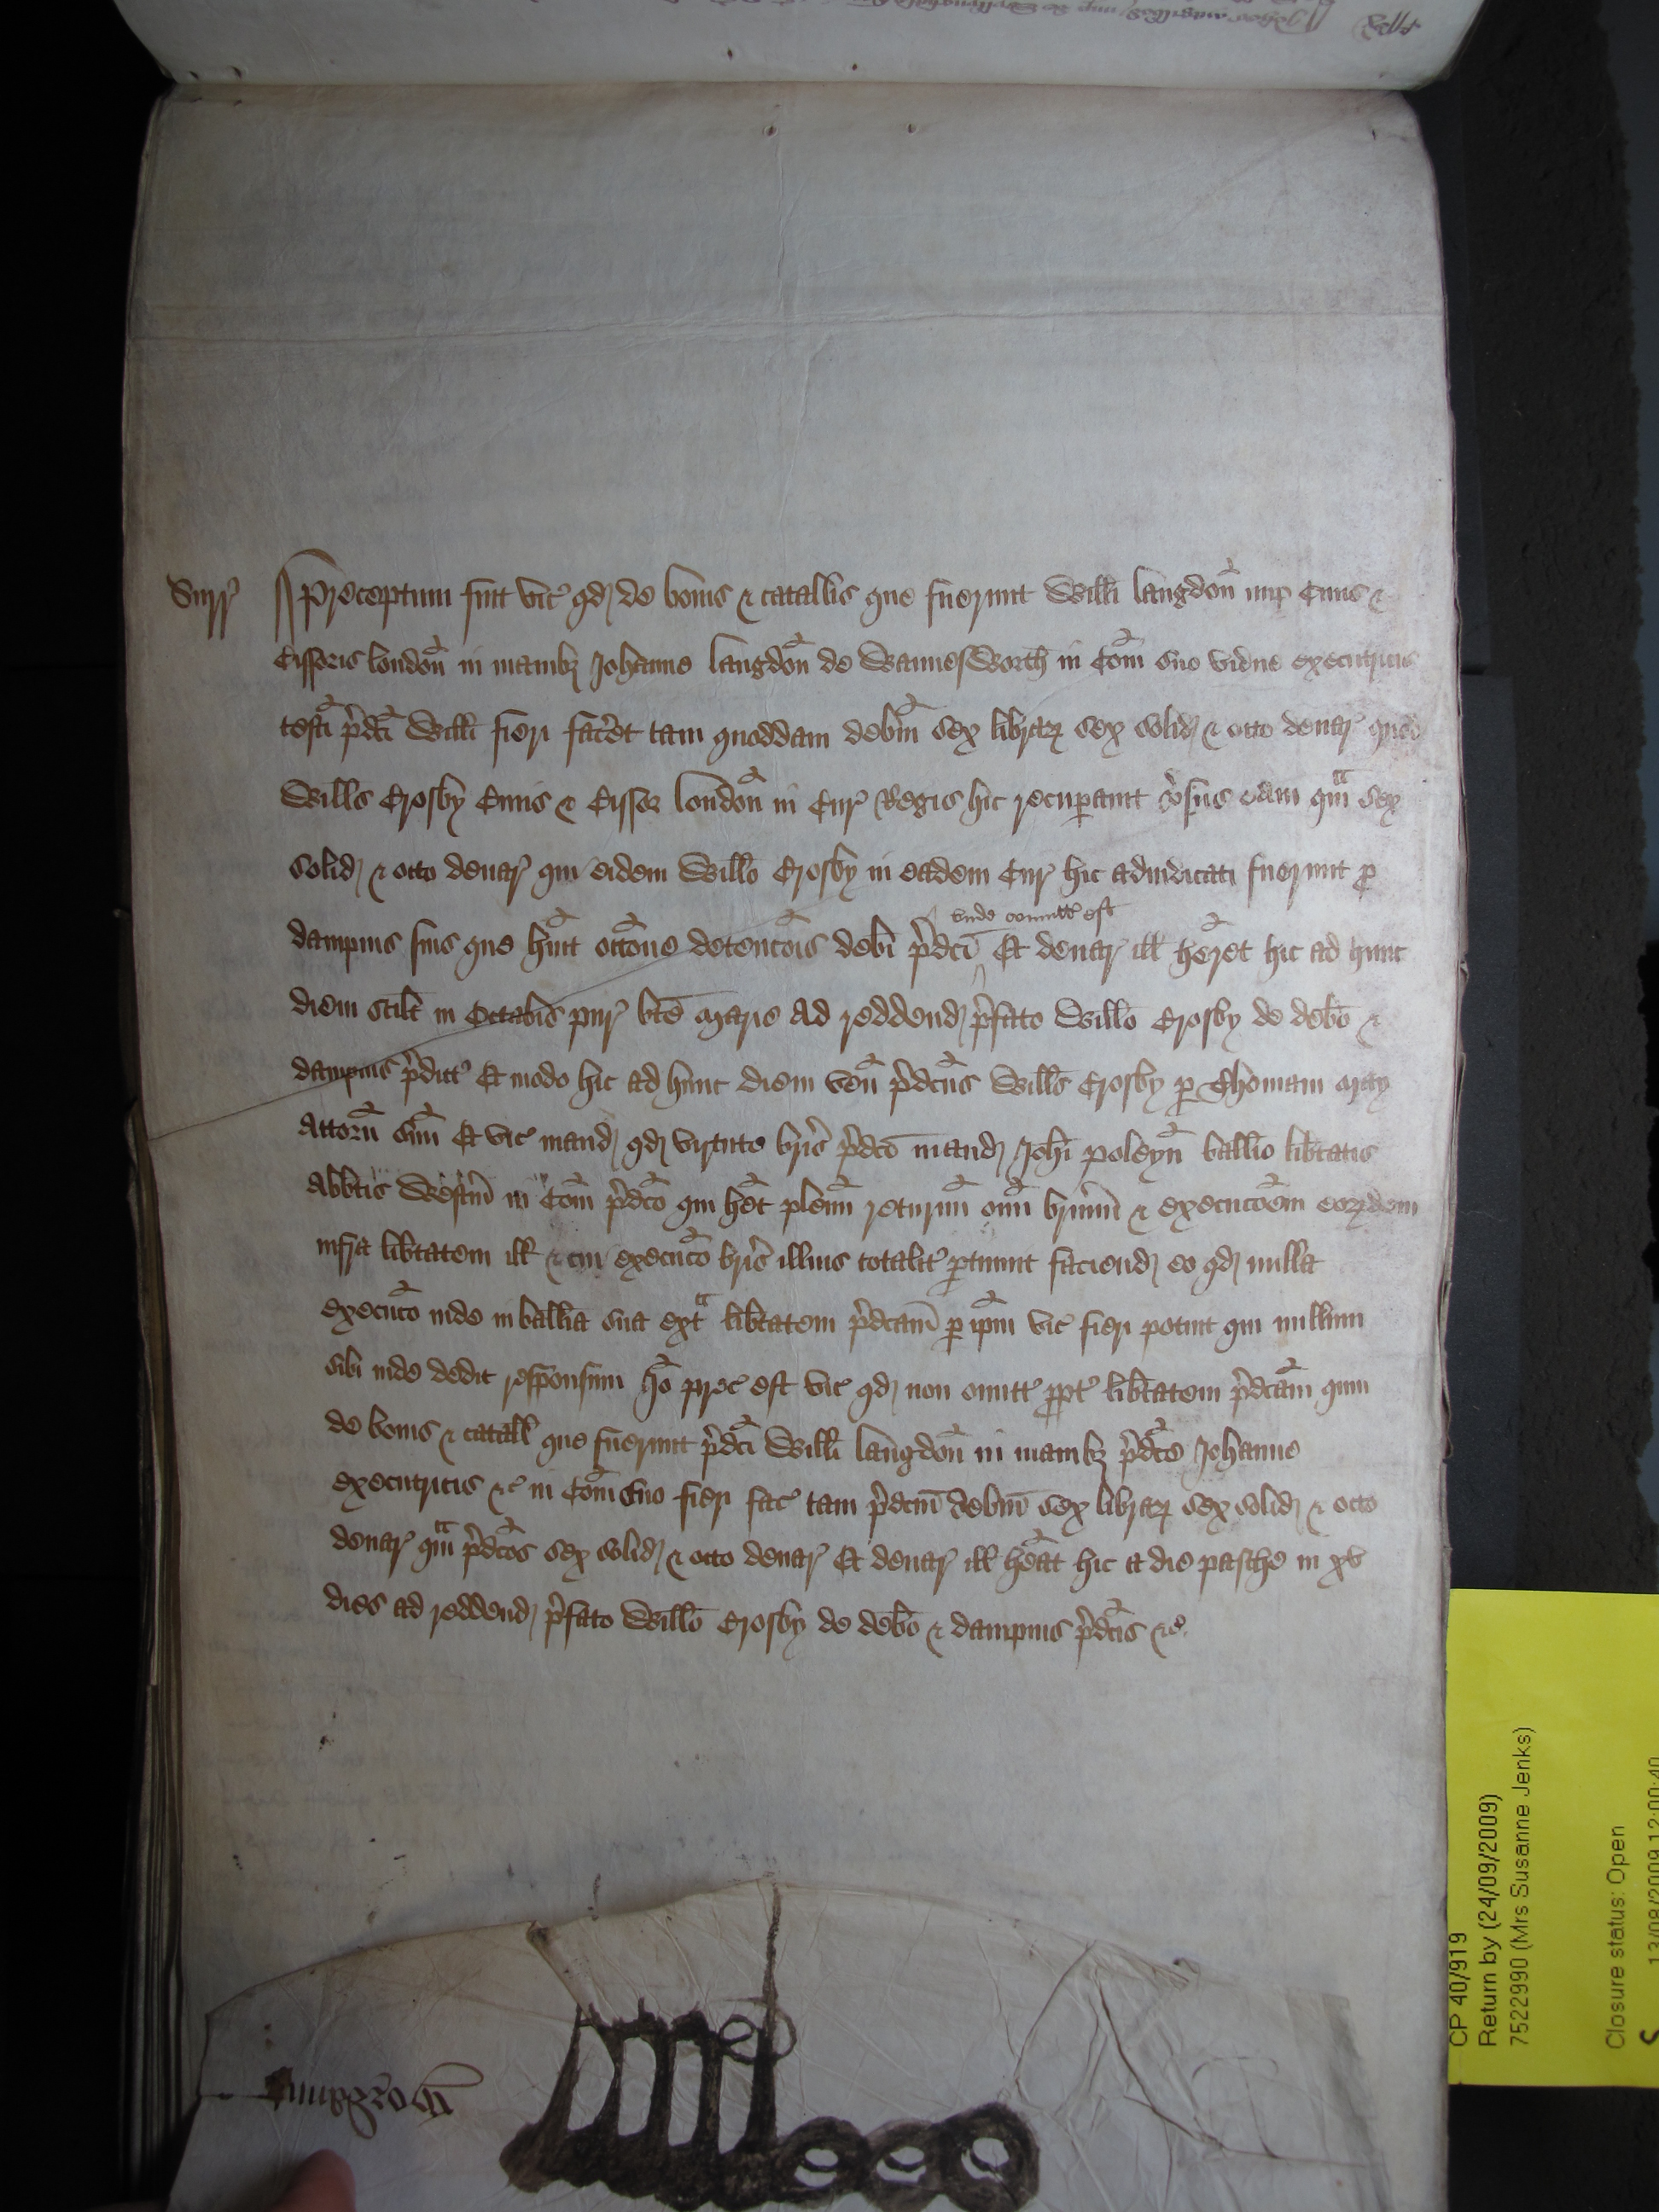 Surr Preceptum fuit vic qd de bonis & catallis que fuerunt Willi Langdon nup Civis &
Cissoris london in manibz Johanne langdon de Wannesworth in Com suo vidue executricis
testi pdci Willi fieri facet tam quoddam debm sex librarz sex solid & octo denar quod
Wills Crosby Civis & Cissor london in Cur Regis hic recupavit vsus eam qm sex
solid & octo denar qui eidem Willo Crosby in eadem Cur hic adiudicati fuerunt p
dampnis suis que huit occone detencois debi pdci
unde convict est
Et denar ill heret hic ad hunc
diem scilt in Octabis pur bte Marie Ad reddend pfato Willo Crosby de debo &
dampnis pdict Et modo hic ad hunc diem ven pdcus Wills Crosby p Thomam May
Attorn suu Et vic mand qd virtute bris pdco mand Johi poleyn ballio libtatis
Abbtis Westm in Com pdco qui het plenu returnu omi brium & execucoem eorzdem
infra libtatem ill & cui execuco bris illius totalit ptinuit faciend eo qd nulla
execuco inde in ballia sua ext libtatem pdcam p ipm vic fieri potuit qui nullum
sibi inde dedit responsum Jo prec est vic qd non omitt ppt libtatem pdcam quin
de bonis & catall que fuerunt pdci Willi langdon in manibz pdce Johanne
executricis &c in Com suo fieri fac tam pdcm debm sex librarz sex solid & octo
denar qm pdcos sex solid & octo denar Et denar ill heat hic a die pasche in xv
dies ad reddend pfato Willo Crosby de debo & dampnis pdcis &c
CP 40/919
Return by (24/09/2009)
7522990 (Mrs Susanne Jenks)
Closure status: Open
13/08/2009 12:00:40